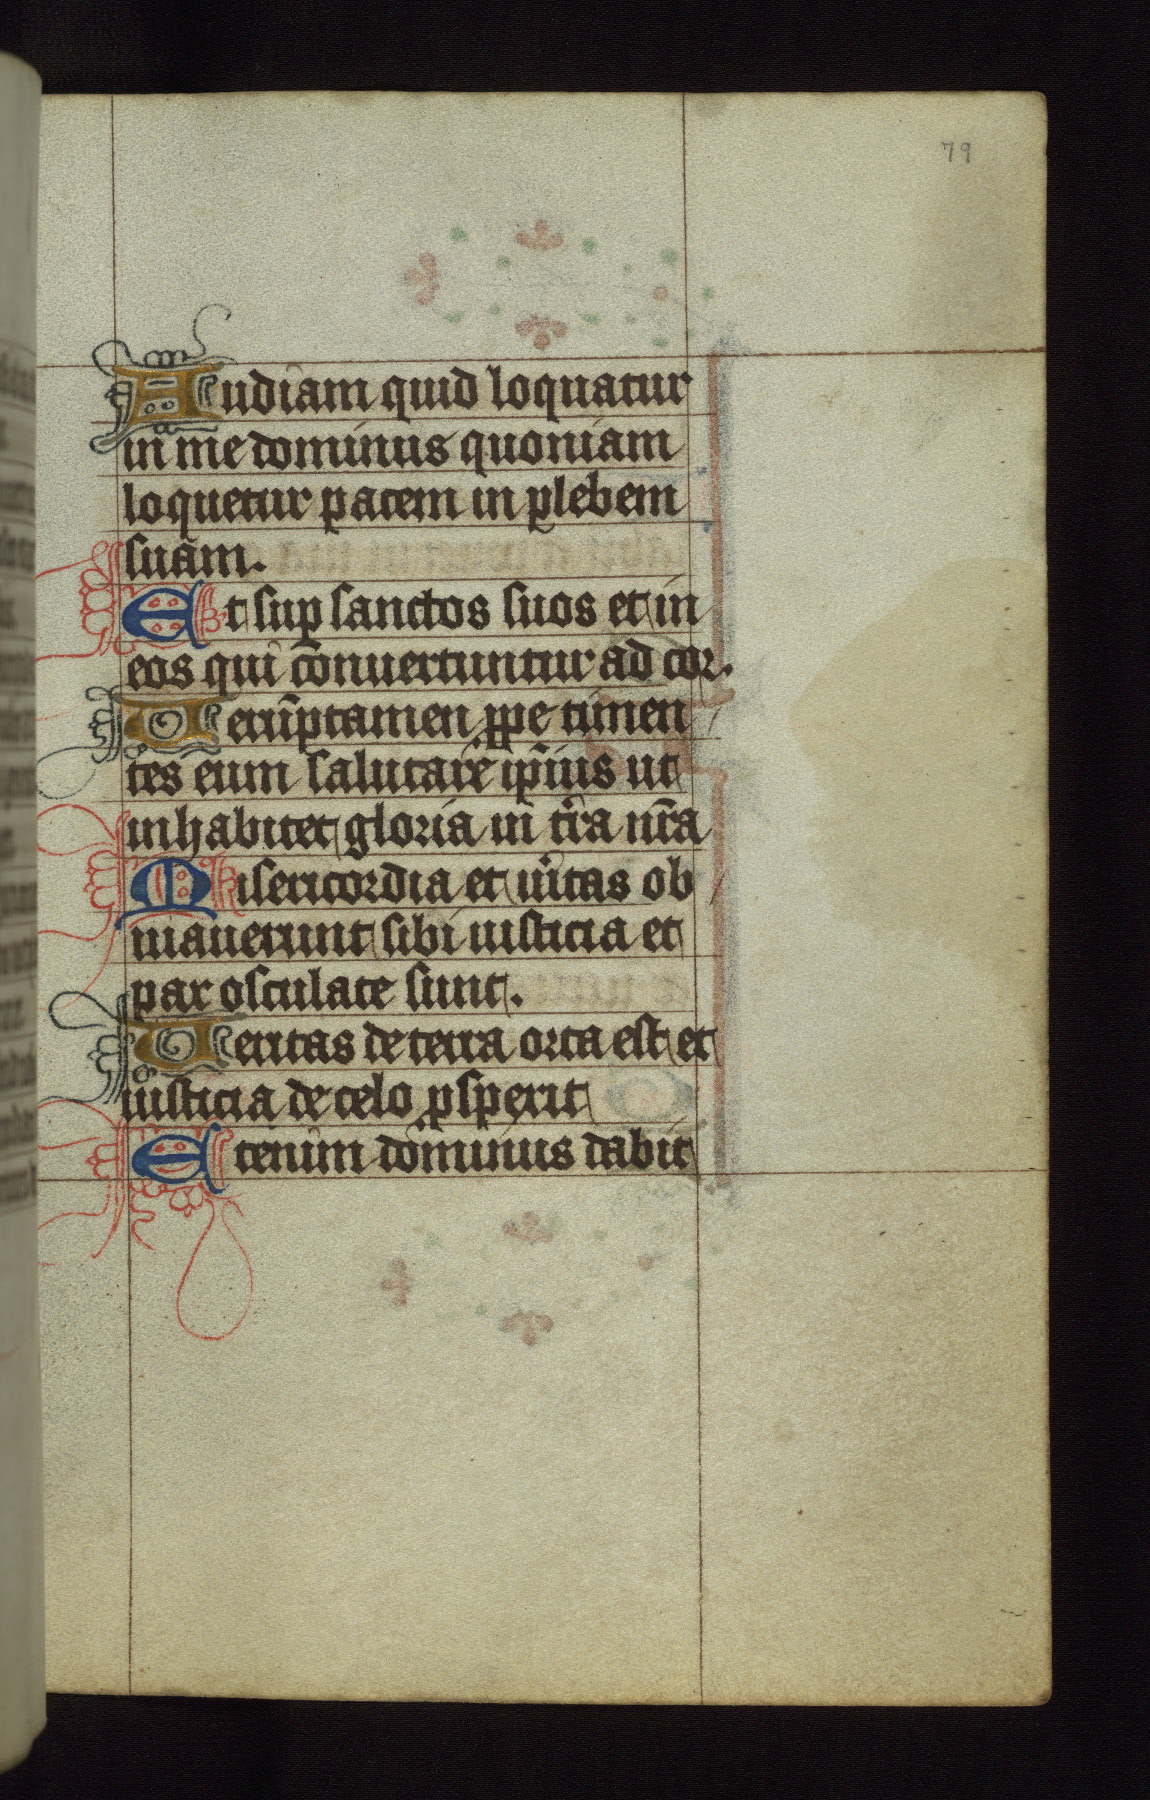 79
Audiam quid loquatur
in me dominus quoniam
loquetur pacem in plebem
suam.
Et sup sanctos suos et in
eos qui cōnuertuntur ad cor.
Uerūptamen ꝓpe timen
tes eum salutare ip̄ius ut
inhabitet gloria in tr̄a nr̄a
Misericordia et uītas ob
uiauerunt sibi iusticia et
pax osculate sunt.
Ueritas de terra orta est et
iusticia de celo ꝓsperit
Etenim dominus dabit